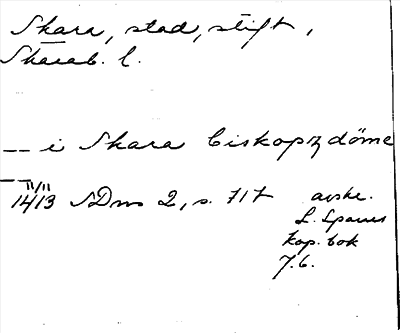 Skara, stad, stift,
Skarab. l.
__ i Skara biskopzdöme
11/11
1413 SDns 2, s. 717 avskr.
L. Sparres
kop. bok
7.6.